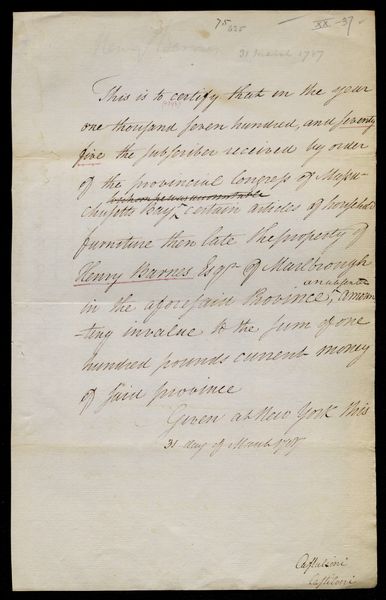 75
625
XX-37
Henry Barnes
31 March 1787
This is to certify that in the year
one thousand seven hundred, and seventy
five the subscriber received by order
of the provincial Congress of Massa-
to whom he was accountable
chusetts Bay certain articles of household
furniture then late the property of
Henry Barnes Esqr. of Marlbrough
an absentee
in the aforesaid Province, amoun
ting in value to the sum of one
hundred pounds current money
of said province
Given at New York this
31 day of March 1787